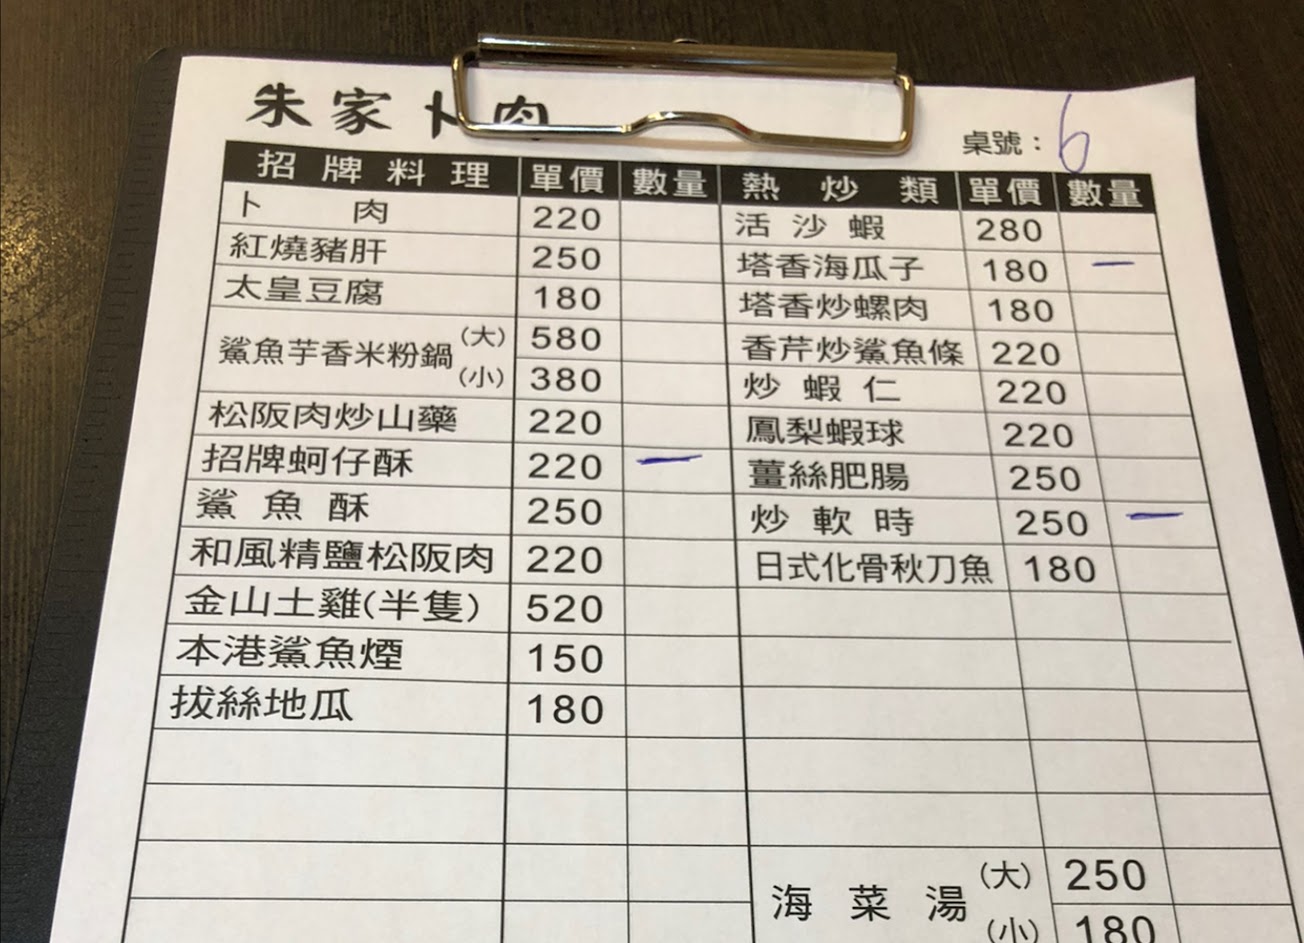 朱家卜肉
桌號：6
招牌料理 單價 數量 熱炒類 單價 數量
卜肉 220 活沙蝦 280
紅燒豬肝 250 塔香海瓜子 180 一
太皇豆腐 180 塔香炒螺肉 180
鯊魚芋香米粉鍋 (大) 580 香芹炒鯊魚條 220
(小) 380 炒蝦仁 220
松阪肉炒山藥 220 鳳梨蝦球 220
招牌蚵仔酥 220 一 薑絲肥腸 250
鯊魚酥 250 炒軟時 250 一
和風精鹽松阪肉 220 日式化骨秋刀魚 180
金山土雞(半隻) 520
本港鯊魚煙 150
拔絲地瓜 180
海菜湯 (大) 250
(小) 180